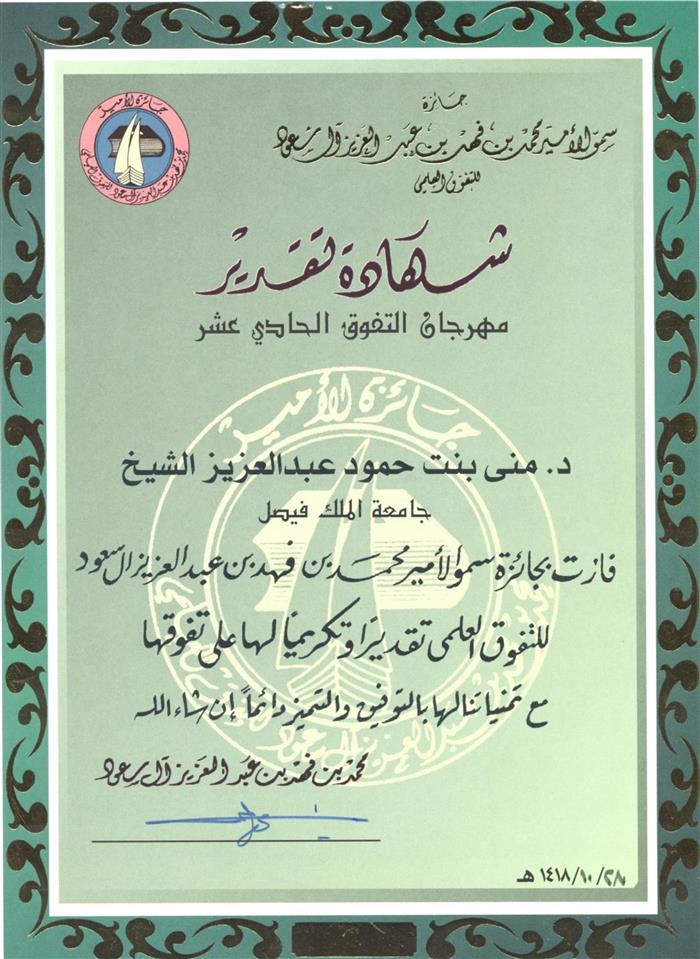 جائزة
سمو الأمير محمد بن فهد بن عبد العزيز آل سعود
للتفوق العلمي
جائزة الأمير
شهادة تقدير
مهرجان التفوق الحادي عشر
جائزة الأمير
د. منى بنت حمود عبدالعزيز الشيخ
جامعة الملك فيصل
فازت بجائزة سمو الأمير محمد بن فهد بن عبد العزيز آل سعود
للتفوق العلمى تقديرًا وتكريمًا لها على تفوقها
مع تمنياتنا لها بالتوفيق والتميز دائمًا إن شاء الله
محمد بن فهد بن عبد العزيز آل سعود
٢٨/١٠/١٤١٨ هـ